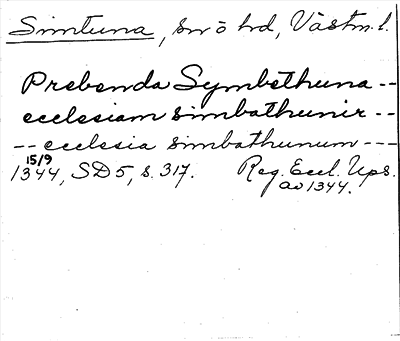 Simtuna, sn ö hd, Västm. l.
Prebenda Symbethuna --
ecclesiam simbathunir --
-- ecclesia simbathunum ---
15/9
1344, SD 5, s. 317. Reg. Eccl. Ups.
av 1344.